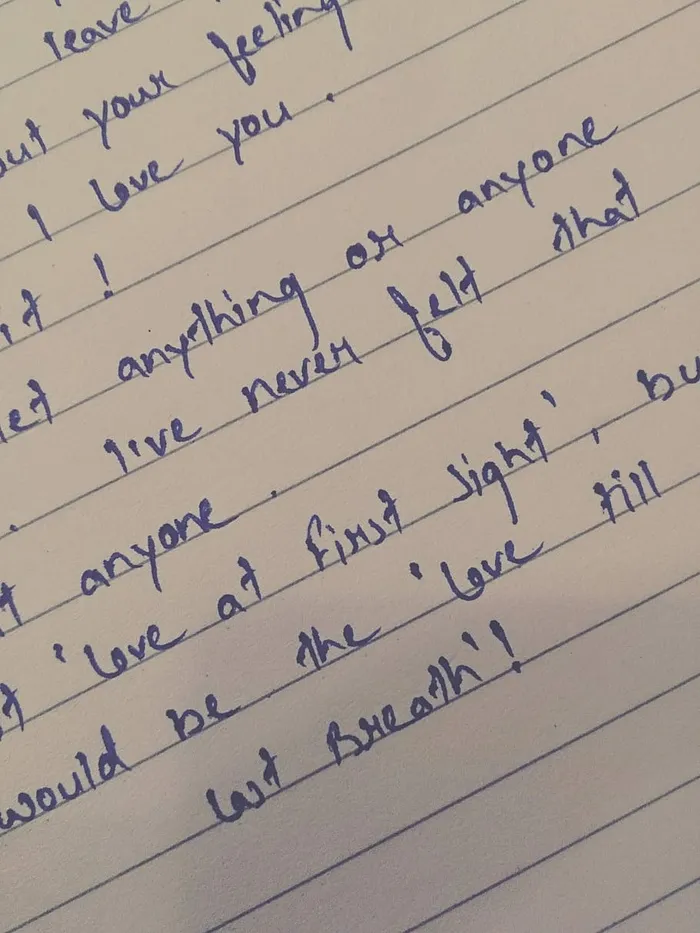 leave
out your feeling
I love you.
it !
let anything or anyone
. I've never felt that
t anyone.
t 'love at first sight', bu
would be the 'love till
last Breath'!